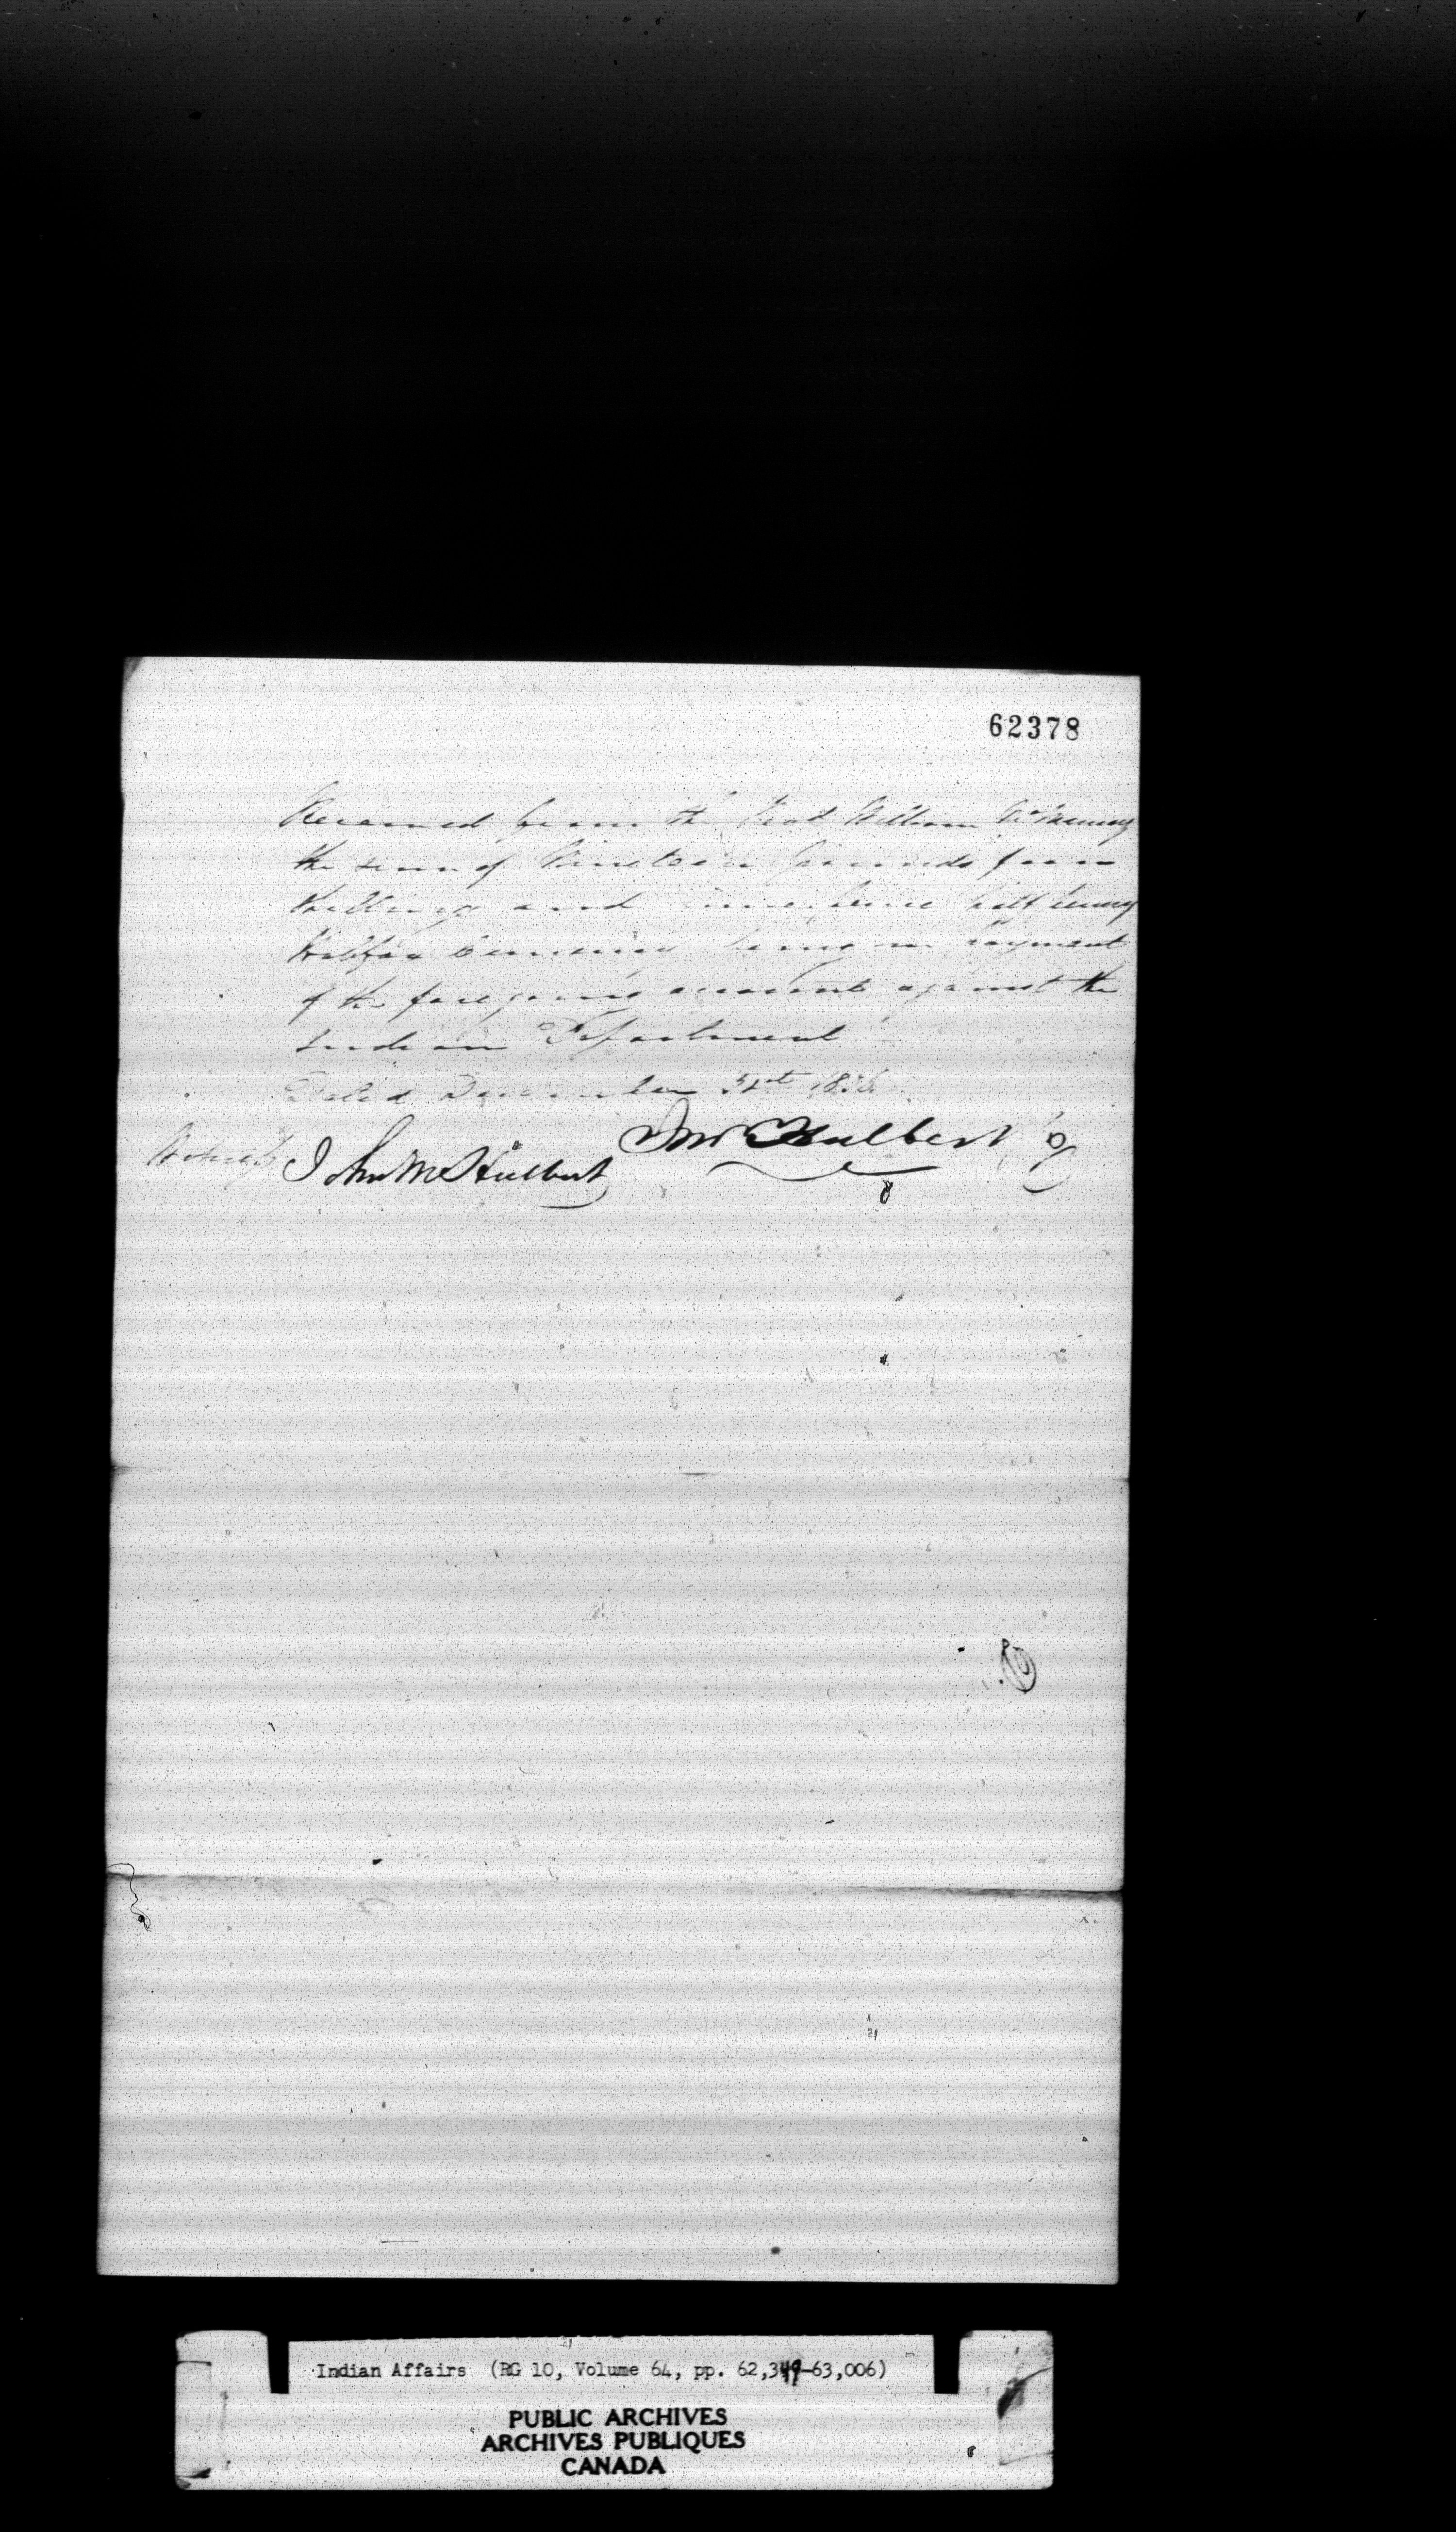 62378
Received from the Revd William McMurray
the sum of Nineteen pounds four
shillings and nine pence half penny
Halifax Currency being in payment
of the foregoing accounts against the
Indian Department
Dated December 31st 183
John M Hulbert Jno Hulbert
Indian Affairs (RG 10, Volume 64, pp. 62,349-63,006)
PUBLIC ARCHIVES
ARCHIVES PUBLIQUES
CANADA